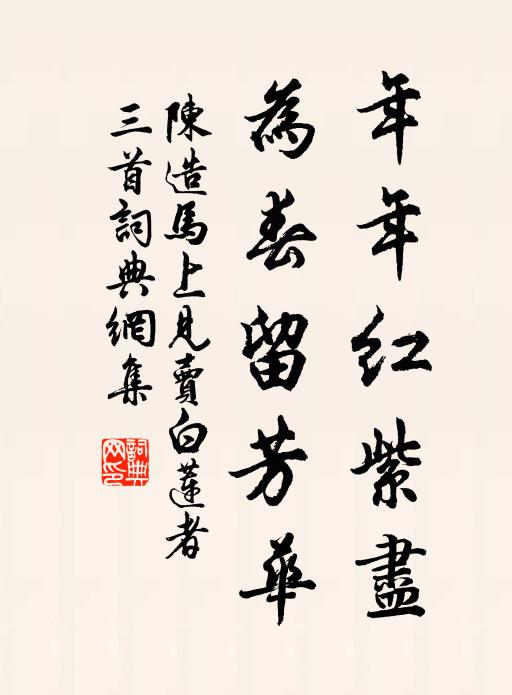 年年红紫盡
為春留芳華
陳造馬上見賣白蓮者
三首詞典網集
詞典网印